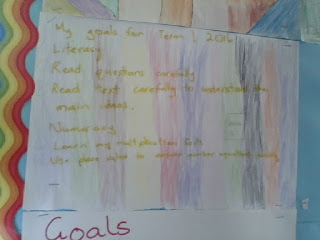 My goals for Term 1 2016
Literacy
Read questions carefully
Read text carefully to understand the
main ideas.
Numeracy
Learn my multiplication facts
Use place value to number
Goals